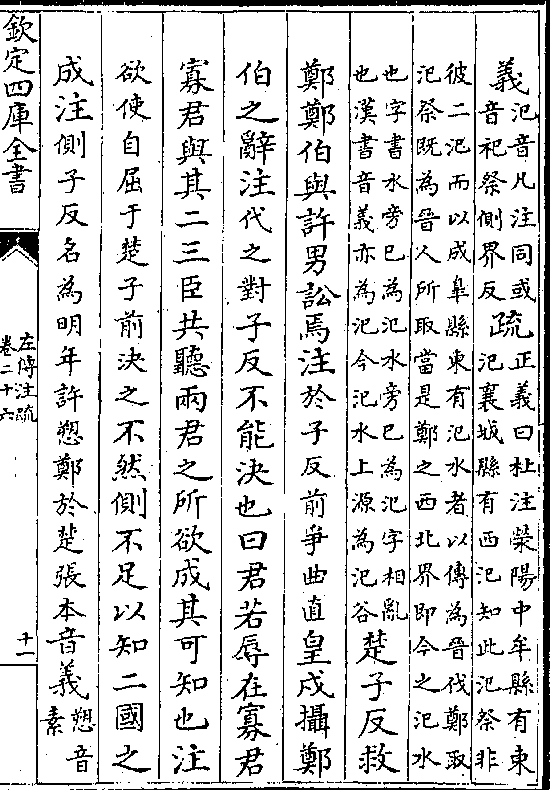 義
汜音凡注同或
音祀祭側界反
疏
正義曰杜注滎陽中牟縣有東
汜襄城縣有西汜知此汜祭非
彼二汜而以成臯縣東有汜水者以傳為晉伐鄭取
汜祭既為晉人所取當是鄭之西北界即今之汜水
也字書水旁巳為汜水旁巳為汜字相亂
也漢書音義亦為汜今汜水上源為汜谷
楚子反救
鄭鄭伯與許男訟焉注於子反前爭曲直皇戌攝鄭
伯之辭注代之對子反不能決也曰君若辱在寡君
寡君與其二三臣共聽兩君之所欲成其可知也注
欲使自屈于楚子前決之不然側不足以知二國之
成注側子反名為明年許愬鄭於楚張本音義
愬音
素
欽定四庫全書
左傳注疏
卷二十六
十一